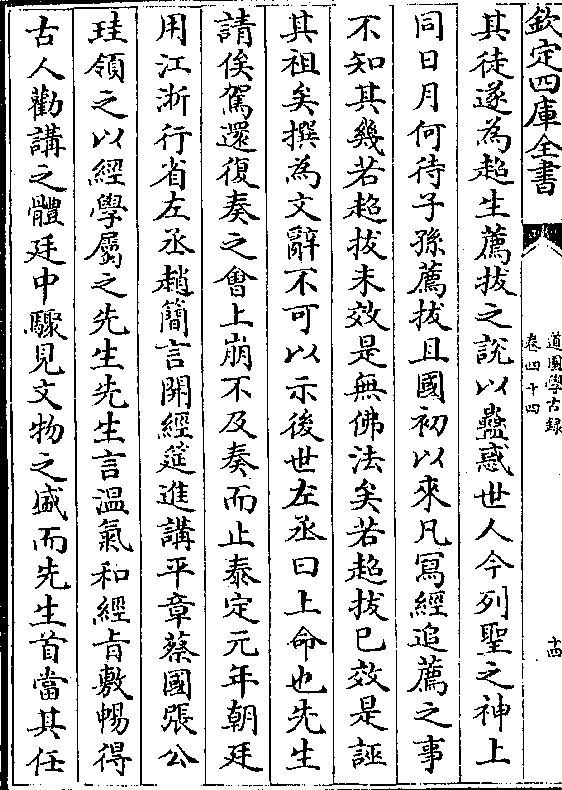 欽定四庫全書
道園學古錄
卷四十四
十四
其徒遂為超生薦拔之說以蠱惑世人今列聖之神上
同日月何待子孫薦拔且國初以來凡寫經追薦之事
不知其幾若超拔未效是無佛法矣若超拔已效是誣
其祖矣撰為文辭不可以示後世左丞曰上命也先生
請俟駕還復奏之會上崩不及奏而止泰定元年朝廷
用江浙行省左丞趙簡言開經筵進講平章蔡國張公
珪領之以經學屬之先生先生言溫氣和經㫖敷暢得
古人勸講之體廷中驟見文物之盛而先生首當其任